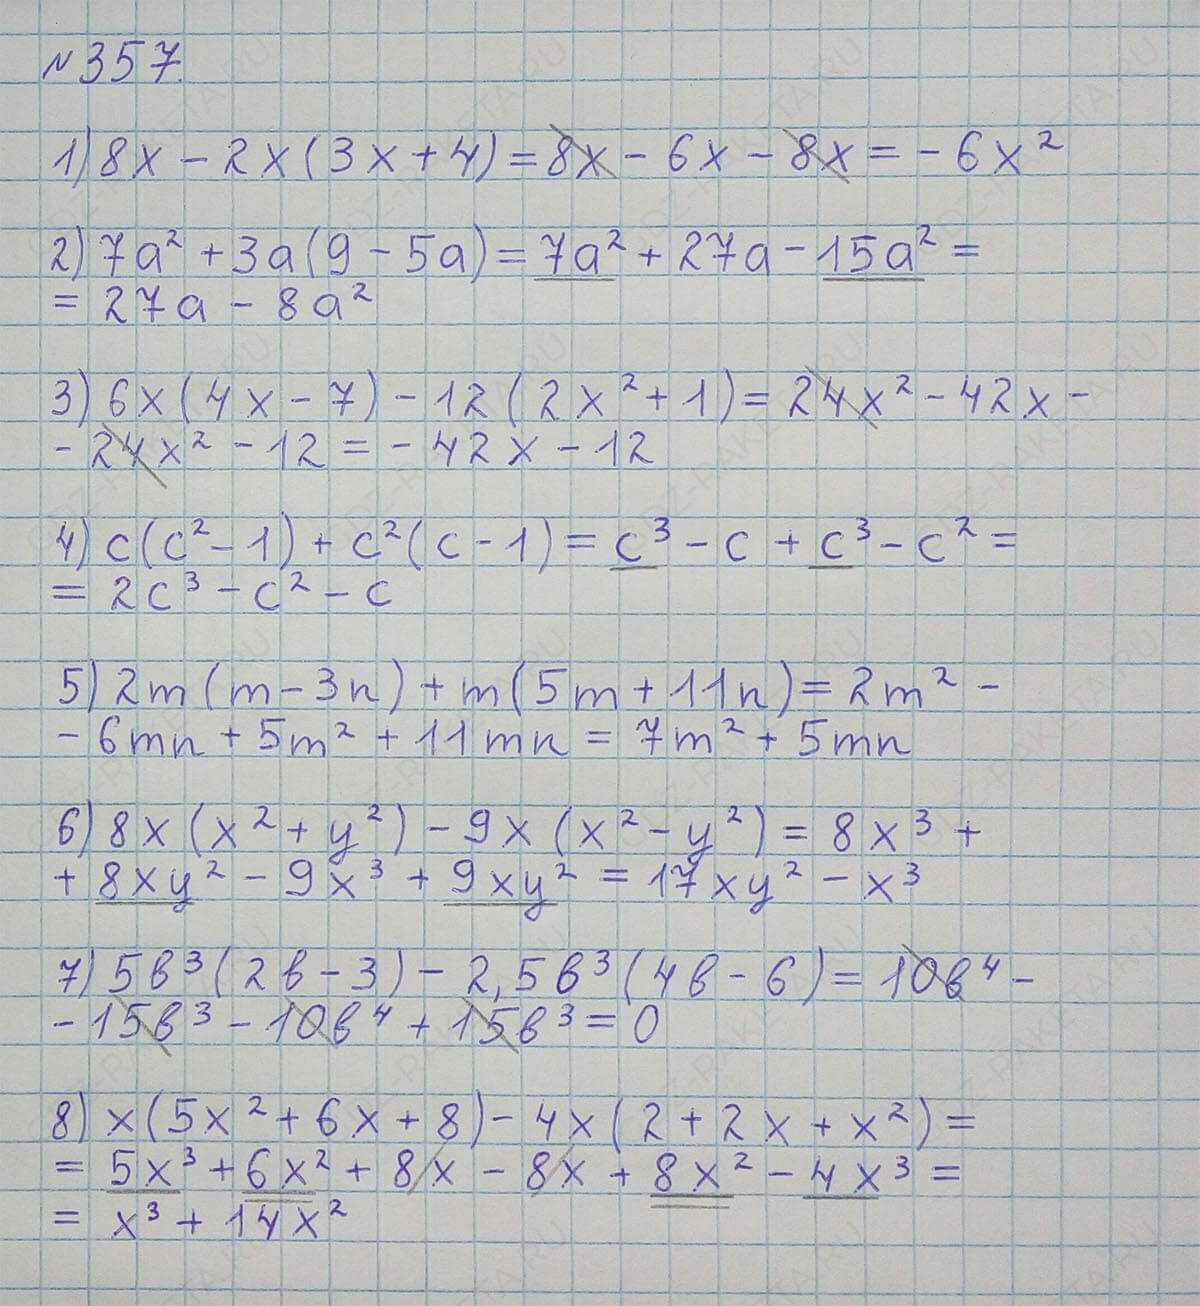 №357.
1) 8x - 2x(3x+4) = 8x - 6x - 8x = -6x²
2) 7a² + 3a(9 - 5a) = 7a² + 27a - 15a² =
= 27a - 8a²
3) 6x(4x - 7) - 12(2x² + 1) = 24x² - 42x -
- 24x² - 12 = - 42x - 12
4) c(c² - 1) + c²(c - 1) = c³ - c + c³ - c² =
= 2c³ - c² - c
5) 2m(m - 3n) + m(5m + 11n) = 2m² -
- 6mn + 5m² + 11mn = 7m² + 5mn
6) 8x(x² + y²) - 9x(x² - y²) = 8x³ +
+ 8xy² - 9x³ + 9xy² = 17xy² - x³
7) 5в³(2в - 3) - 2,5в³(4в - 6) = 10в⁴ -
- 15в³ - 10в⁴ + 15в³ = 0
8) x(5x² + 6x + 8) - 4x(2 + 2x + x²) =
= 5x³ + 6x² + 8x - 8x + 8x² - 4x³ =
= x³ + 14x²
GDZ-RAKETA.RU